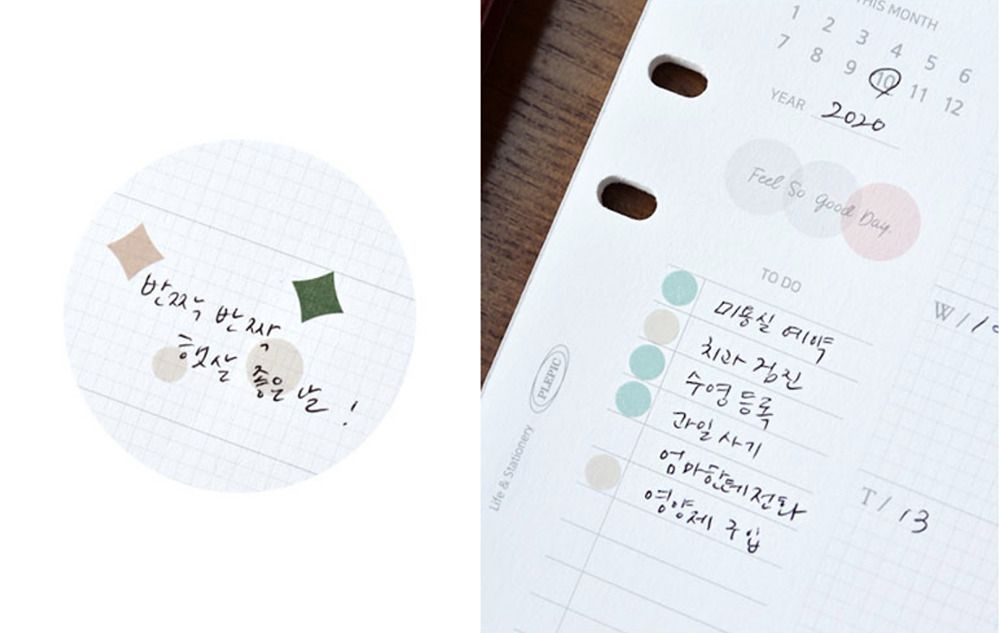 반짝 반짝
햇살 좋은 날 !
THIS MONTH
1 2 3 4 5 6
7 8 9 10 11 12
YEAR 2020
Feel So good Day.
TO DO
미용실 예약
치과 검진
수영 등록
과일 사기
엄마한테 전화
영양제 구입
PLEPIC
Life & Stationery
W /
T / 13